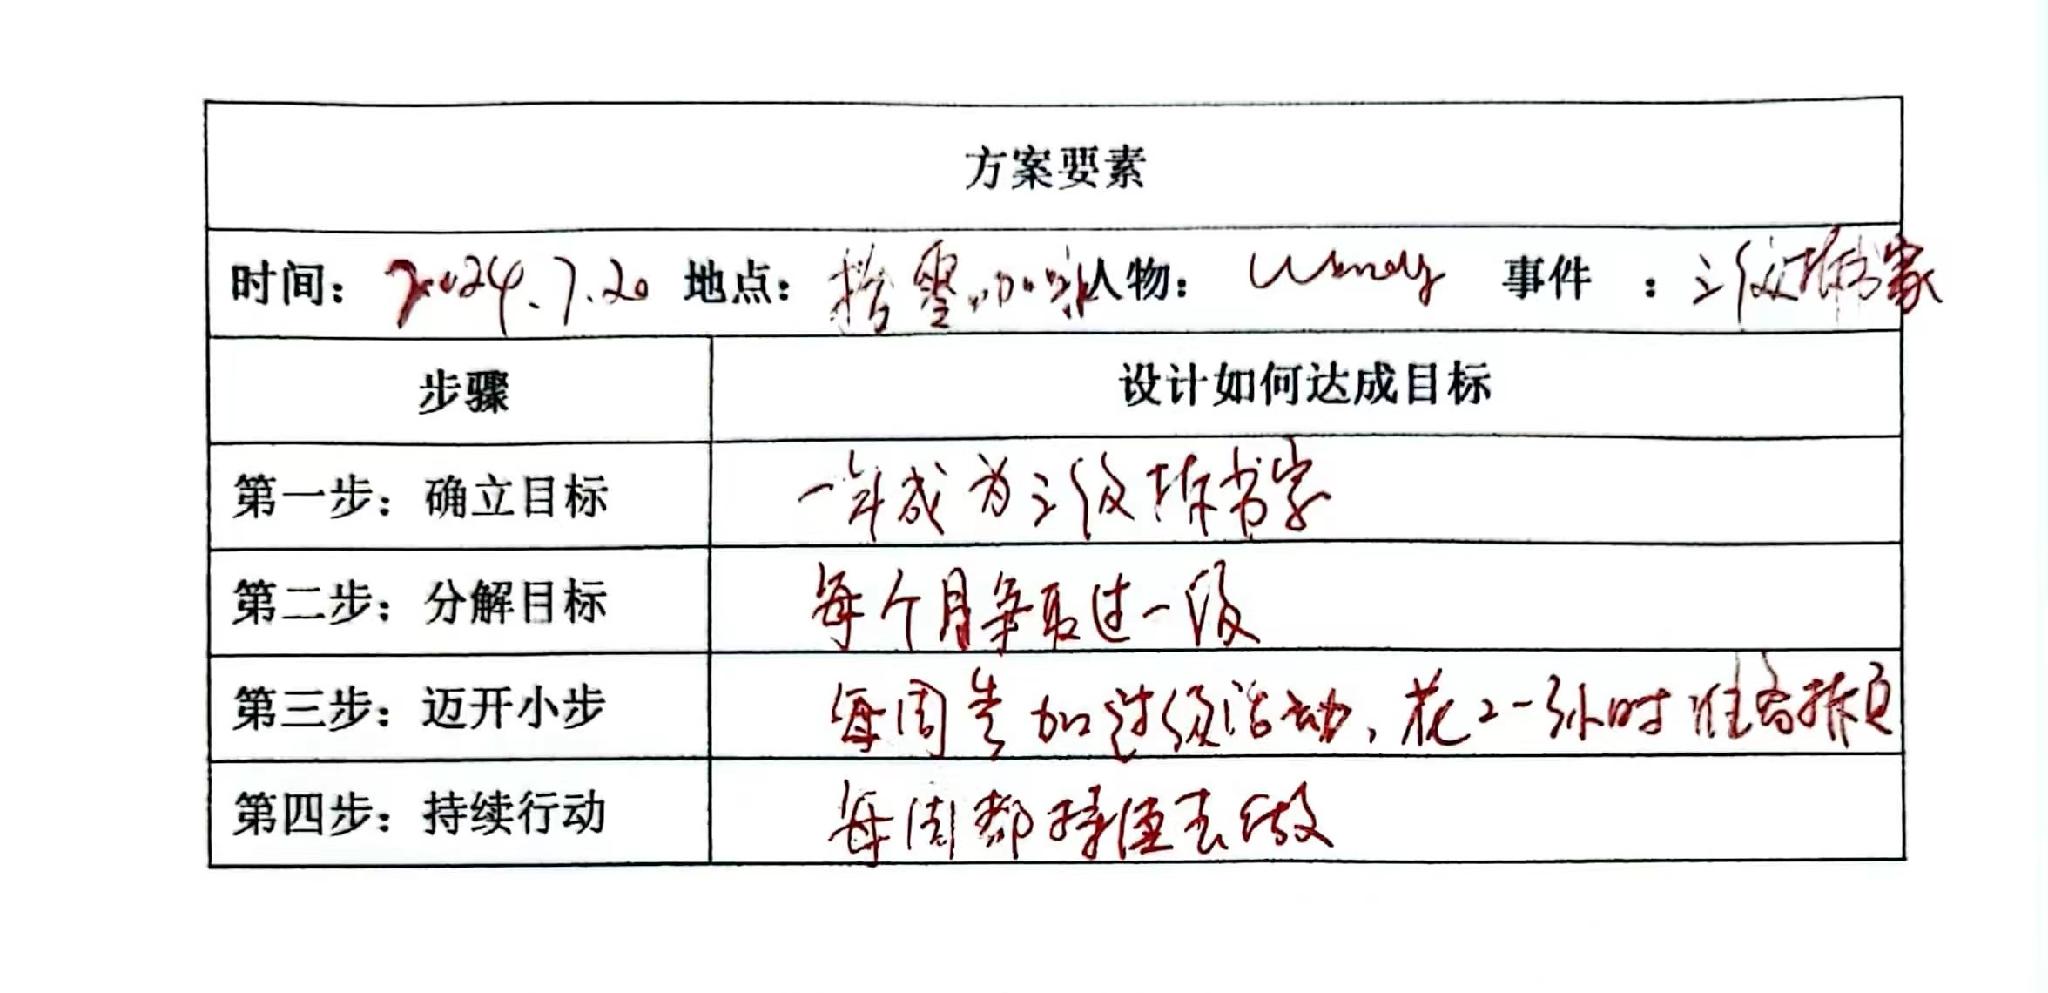 方案要素
时间：2024.7.20 地点： 人物：Wendy 事件：三级拆书家
步骤 设计如何达成目标
第一步：确立目标 一年成为三级拆书家
第二步：分解目标 每个月争取过一级
第三步：迈开小步 每周参加过级活动，花2-3小时准备拆页
第四步：持续行动 每周都持续去做